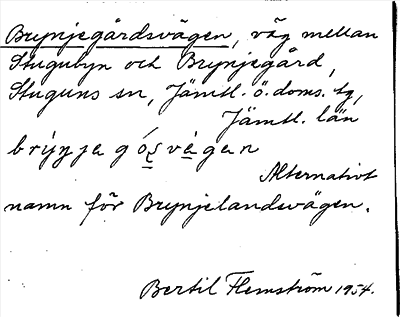 Brynjegårdsvägen, väg mellan
Stugubyn och Brynjegård,
Stuguns sn, Jämtl. ö. doms. tg,
Jämtl. län
Alternativt
namn för Brynjelandsvägen.
Bertil Flemström 1954.